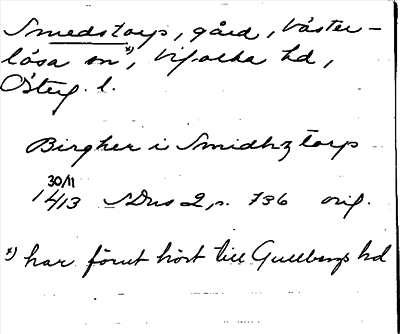 Smedstorp, gård, Väster-
lösa sn*), Vifolka hd,
Österg. l.
Birgher i Smidhztorp
30/11
1413 SDns 2, p. 736 orig.
*) har förut hört till Gullbergs hd